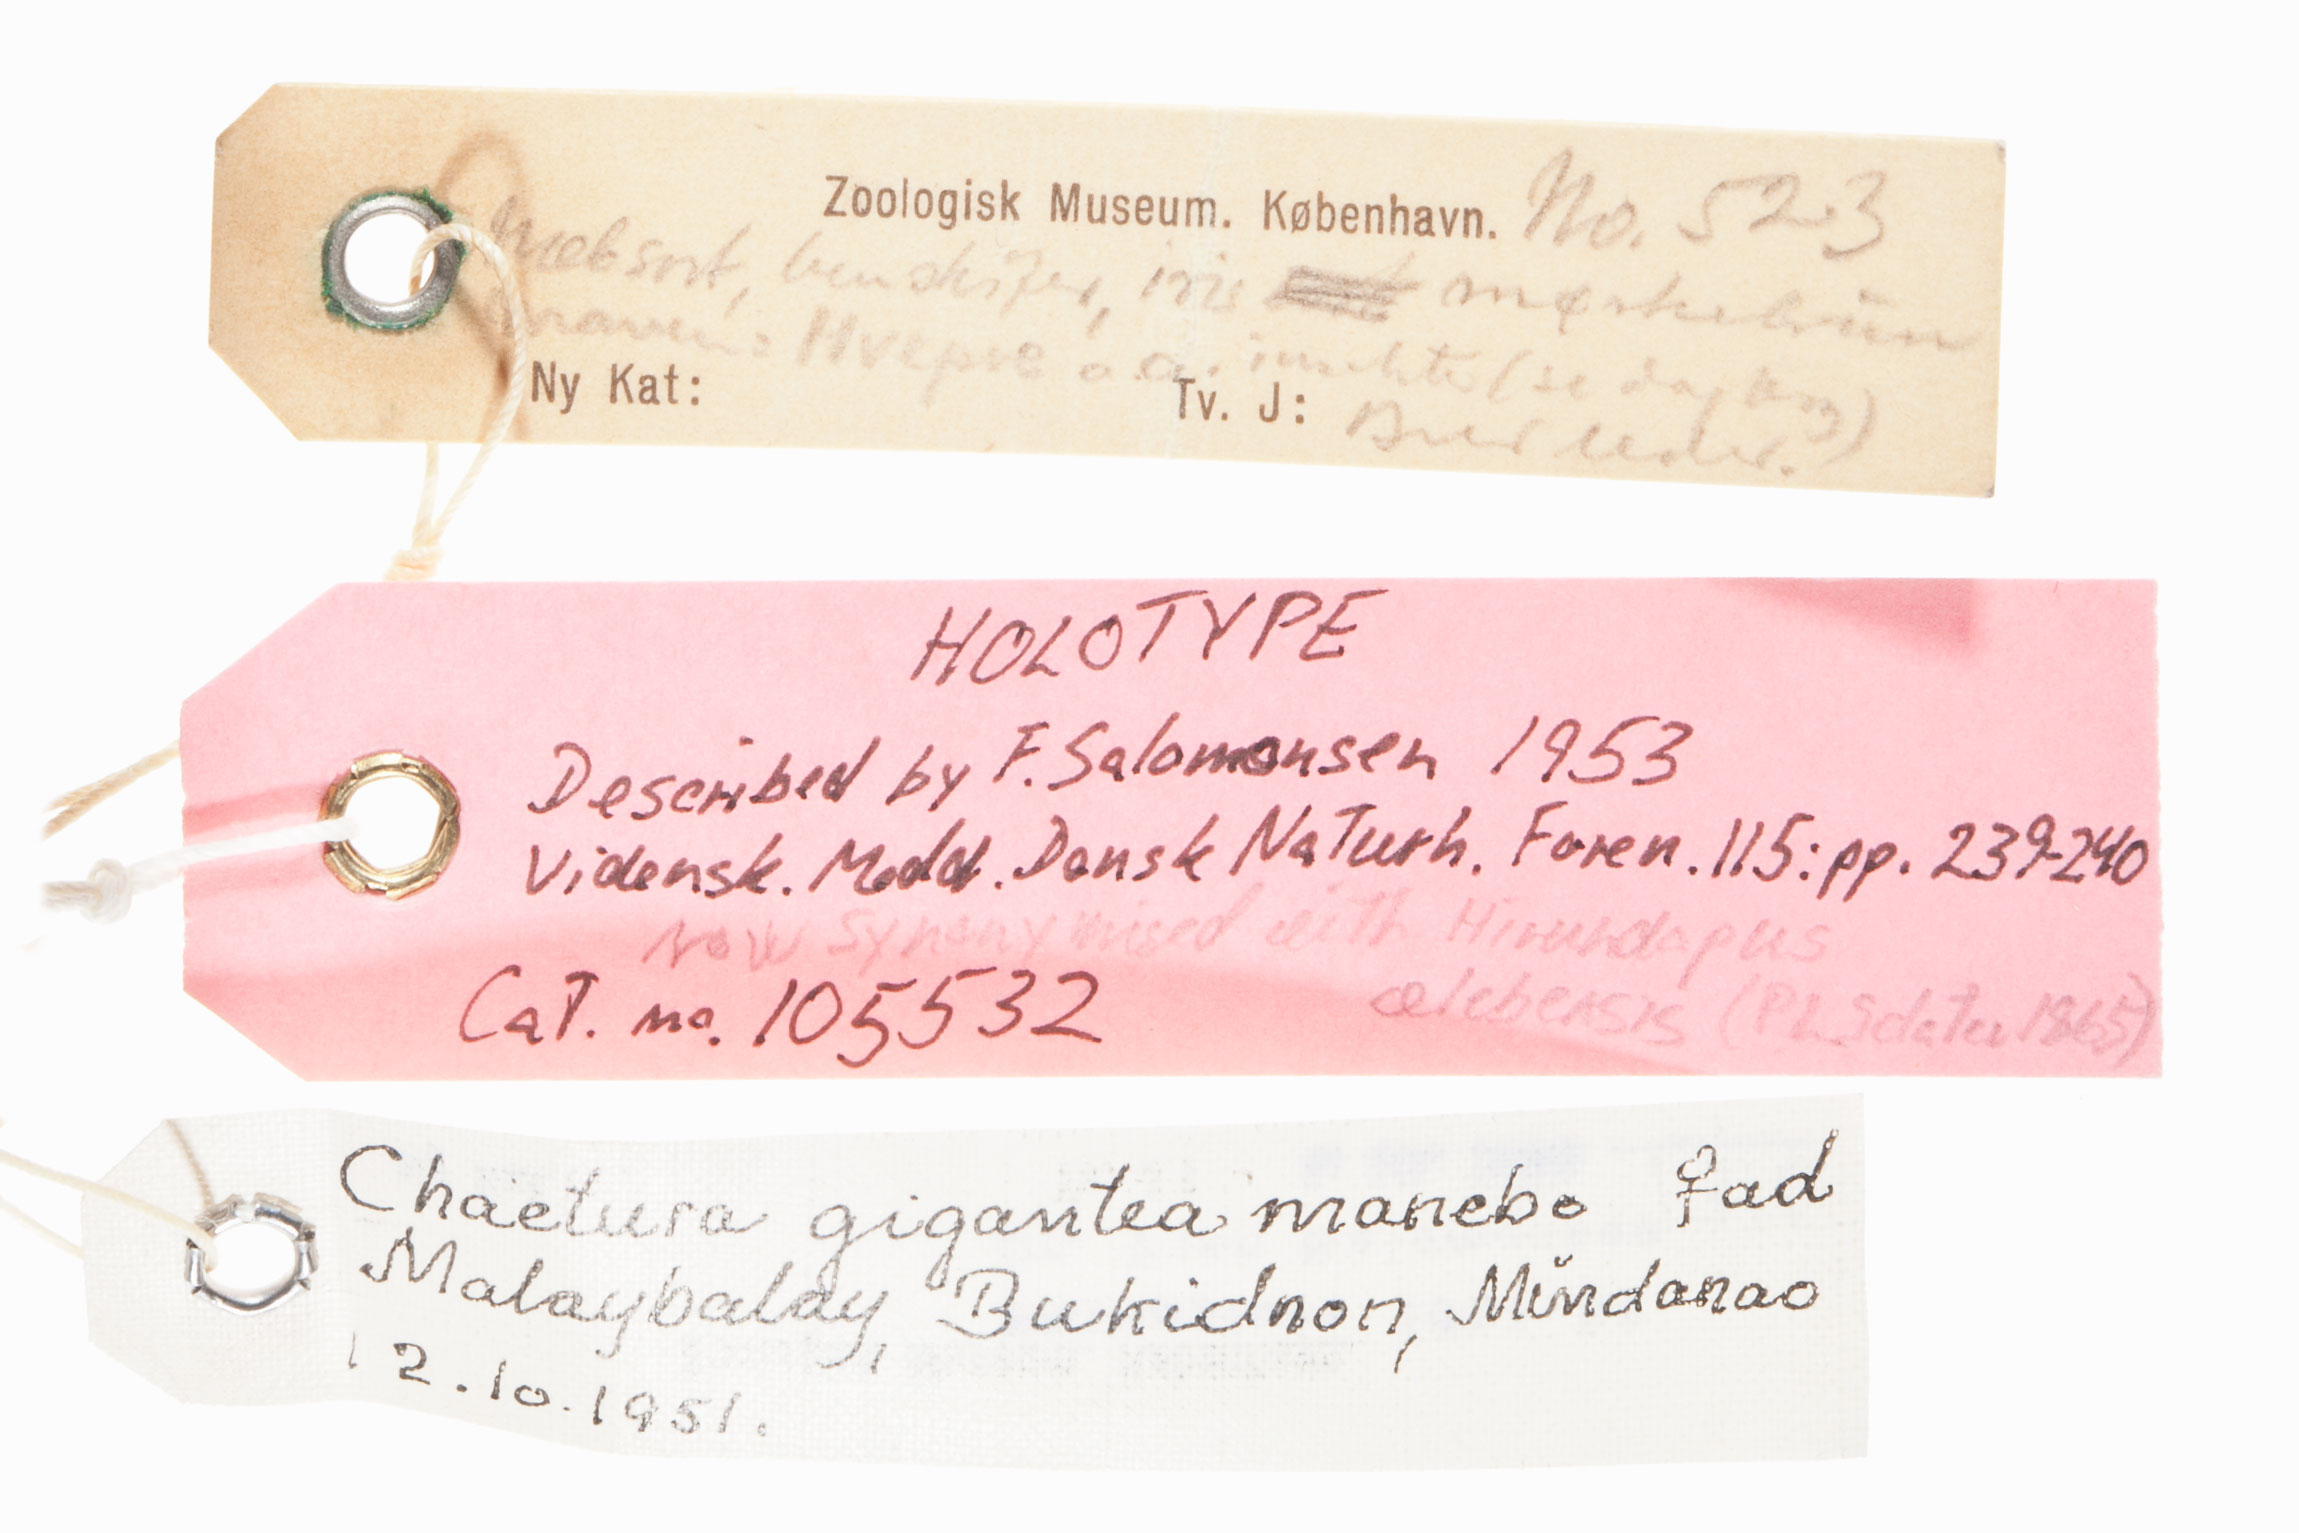 Zoologisk Museum. København. No. 523
Næb sort, ben skifer, iris mørkebrun
maven: Hvepse o.a. insekter (se dagbog)
Ny Kat: Tv. J:
HOLOTYPE
Described by F. Salomonsen 1953
Vidensk. Medd. Dansk Naturh. Foren. 115: pp. 239-240
Now synonymised with Hirundapus
celebensis (P L Sclater 1865)
Cat. no. 105532
Chaetura gigantea manebo ♀ ad
Malaybalay, Bukidnon, Mindanao
12.10.1951.